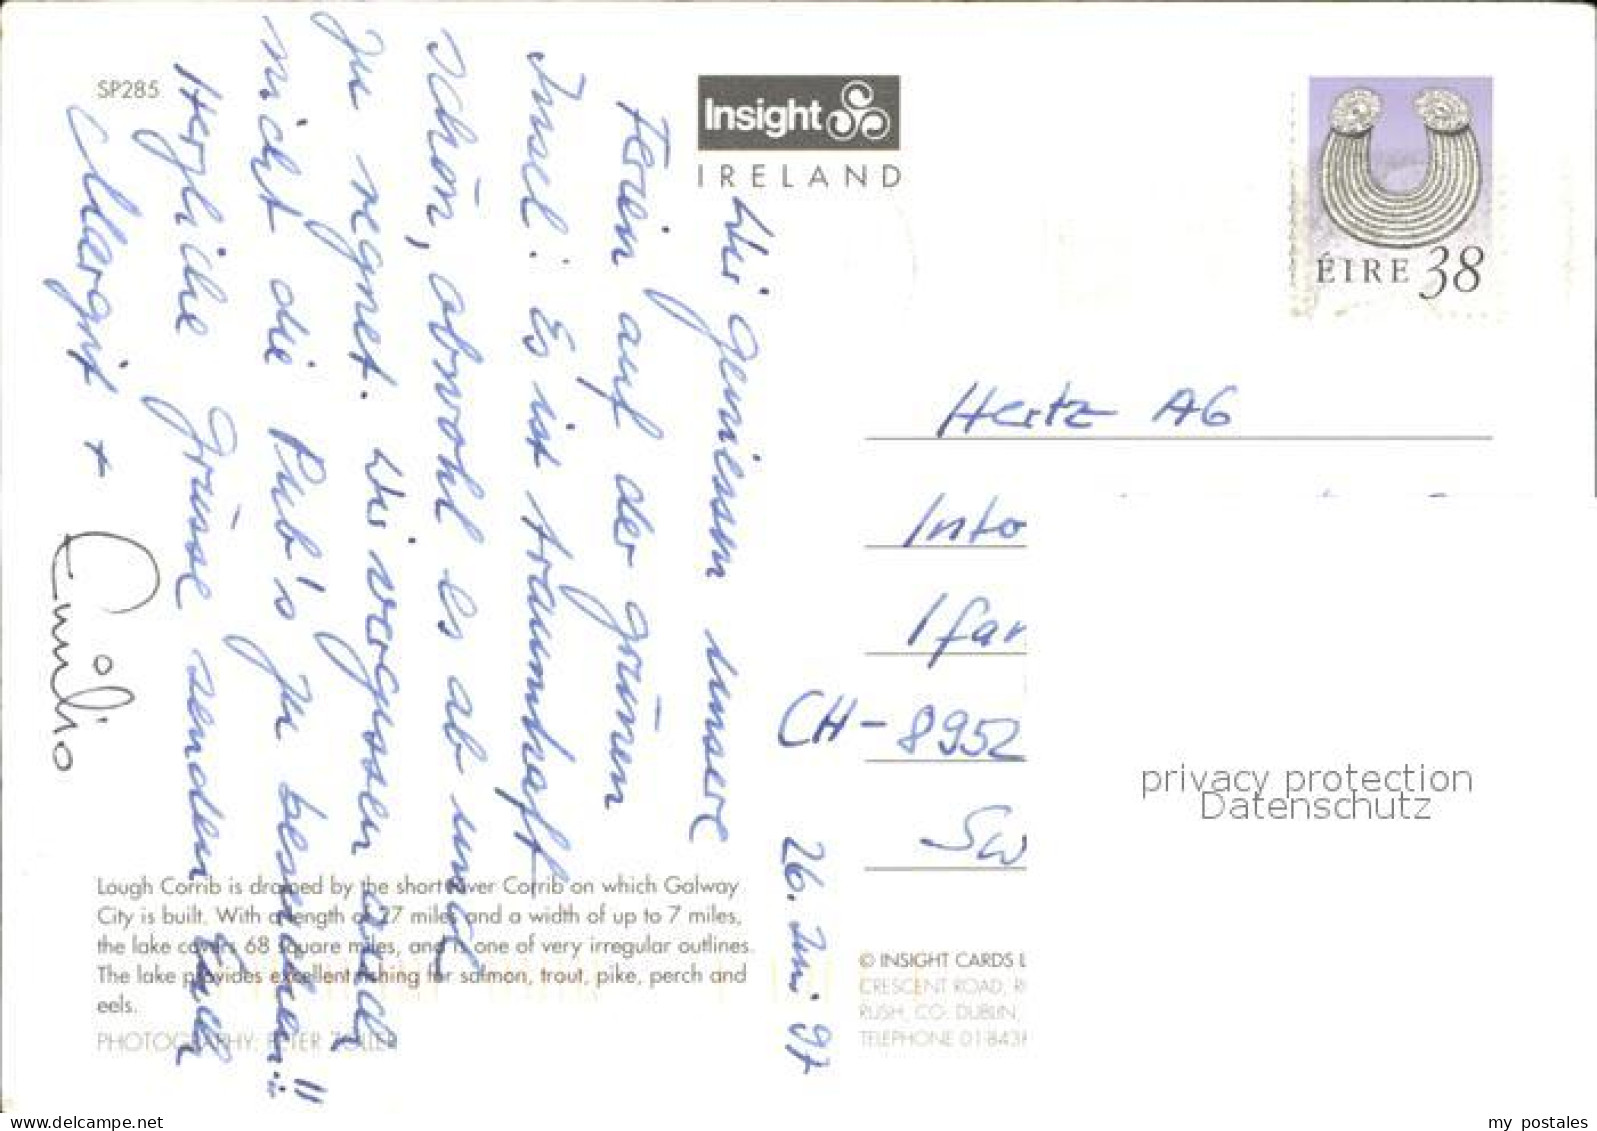 SP285
Insight
IRELAND
ÉIRE 38
Wir geniessen unsere
Ferien auf der grünen
Insel! Es ist traumhaft
schön, obwohl es ab und
zu regnet. Wir vergessen auch
nicht die Pub's zu besuchen!!
Herzliche Grüsse senden Euch
Margrit +
Emilio
26. Juni 97
Hertz AG
CH-8952
Lough Corrib is drained by the short River Corrib on which Galway
City is built. With a length of 27 miles and a width of up to 7 miles,
the lake covers 68 square miles, and is one of very irregular outlines.
The lake provides excellent fishing for salmon, trout, pike, perch and
eels.
PHOTOGRAPHY: PETER ZOLLER
© INSIGHT CARDS L
CRESCENT ROAD,
RUSH, CO. DUBLIN,
TELEPHONE 01-843
privacy protection
Datenschutz
my postales